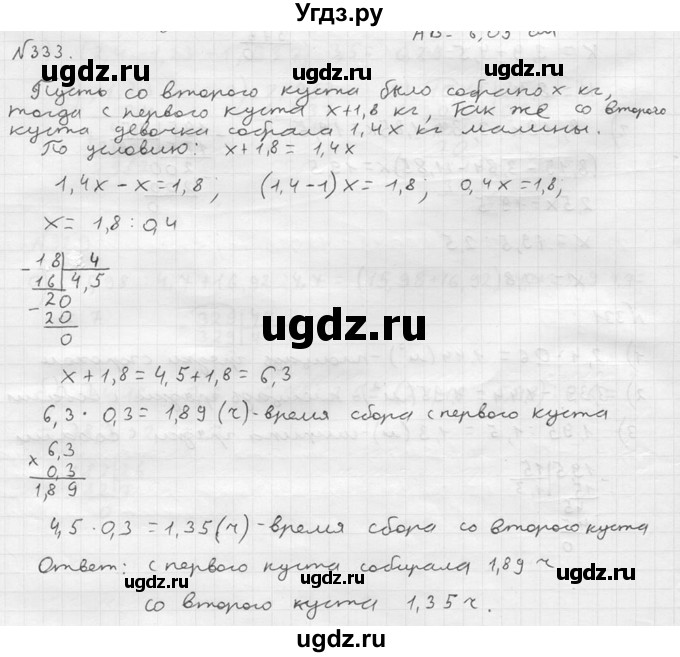 Угдз.ру
AB = 6,09 см
№333.
Пусть со второго куста было собрано x кг,
тогда с первого куста x+1,8 кг, Так же со второго
куста девочка собрала 1,4x кг малины.
По условию: x+1,8 = 1,4x
1,4x - x = 1,8; (1,4-1)x = 1,8; 0,4x = 1,8;
x = 1,8 : 0,4
- 18 | 4
16 | 4,5
- 20
20
0
x + 1,8 = 4,5 + 1,8 = 6,3
6,3 · 0,3 = 1,89 (ч) - время сбора с первого куста
x 6,3
0,3
1,89
4,5 · 0,3 = 1,35 (ч) - время сбора со второго куста
Ответ: с первого куста собирала 1,89 ч
со второго куста 1,35 ч.
ugdz.ru
ugdz.ru
ugdz.ru
ugdz.ru
ugdz.ru
ugdz.ru
ugdz.ru
ugdz.ru
ugdz.ru
ugdz.ru